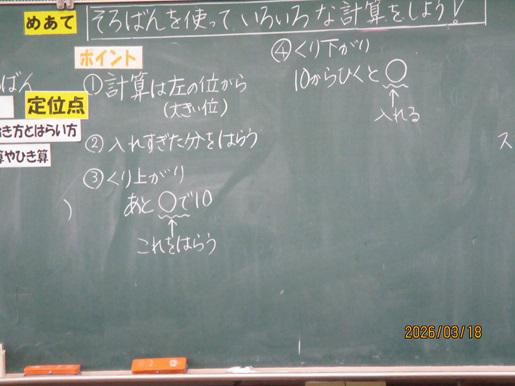 めあて
そろばんを使っていろいろな計算をしよう!
ポイント
①計算は左の位から
(大きい位)
②入れすぎた分をはらう
③くり上がり
あと○で10
↑
これをはらう
④くり下がり
10からひくと○
↑
入れる
ばん
定位点
き方とはらい方
算やひき算
)
ス
2026/03/18